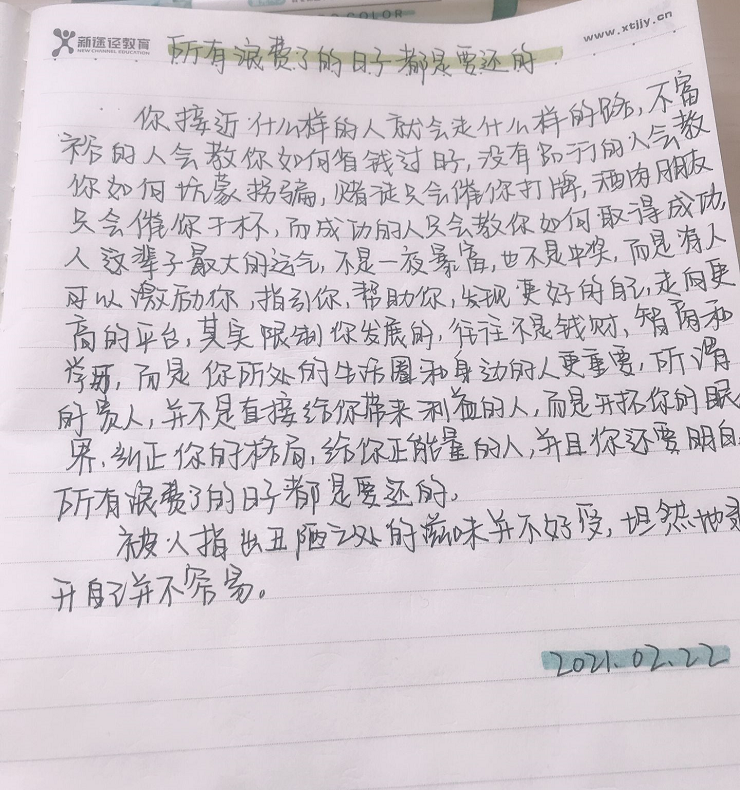 COLOR
新途径教育
NEW CHANNEL EDUCATION
www.xtjjy.cn
所有浪费了的日子都是要还的
你接近什么样的人就会走什么样的路,不富
裕的人会教你如何省钱过日子,没有品行的人会教
你如何坑蒙拐骗,赌徒只会催你打牌,酒肉朋友
只会催你干杯,而成功的人只会教你如何取得成功,
人这辈子最大的运气,不是一夜暴富,也不是中奖,而是有人
可以激励你,指引你,帮助你,发现更好的自己,走向更
高的平台,其实限制你发展的,往往不是钱财,智商和
学历,而是你所处的生活圈和身边的人更重要,所谓
的贵人,并不是直接给你带来利益的人,而是开拓你的眼
界,纠正你的格局,给你正能量的人,并且你还要明白
所有浪费了的日子都是要还的。
被人指出丑陋之处的滋味并不好受,坦然地
开自己并不容易。
2021.02.22